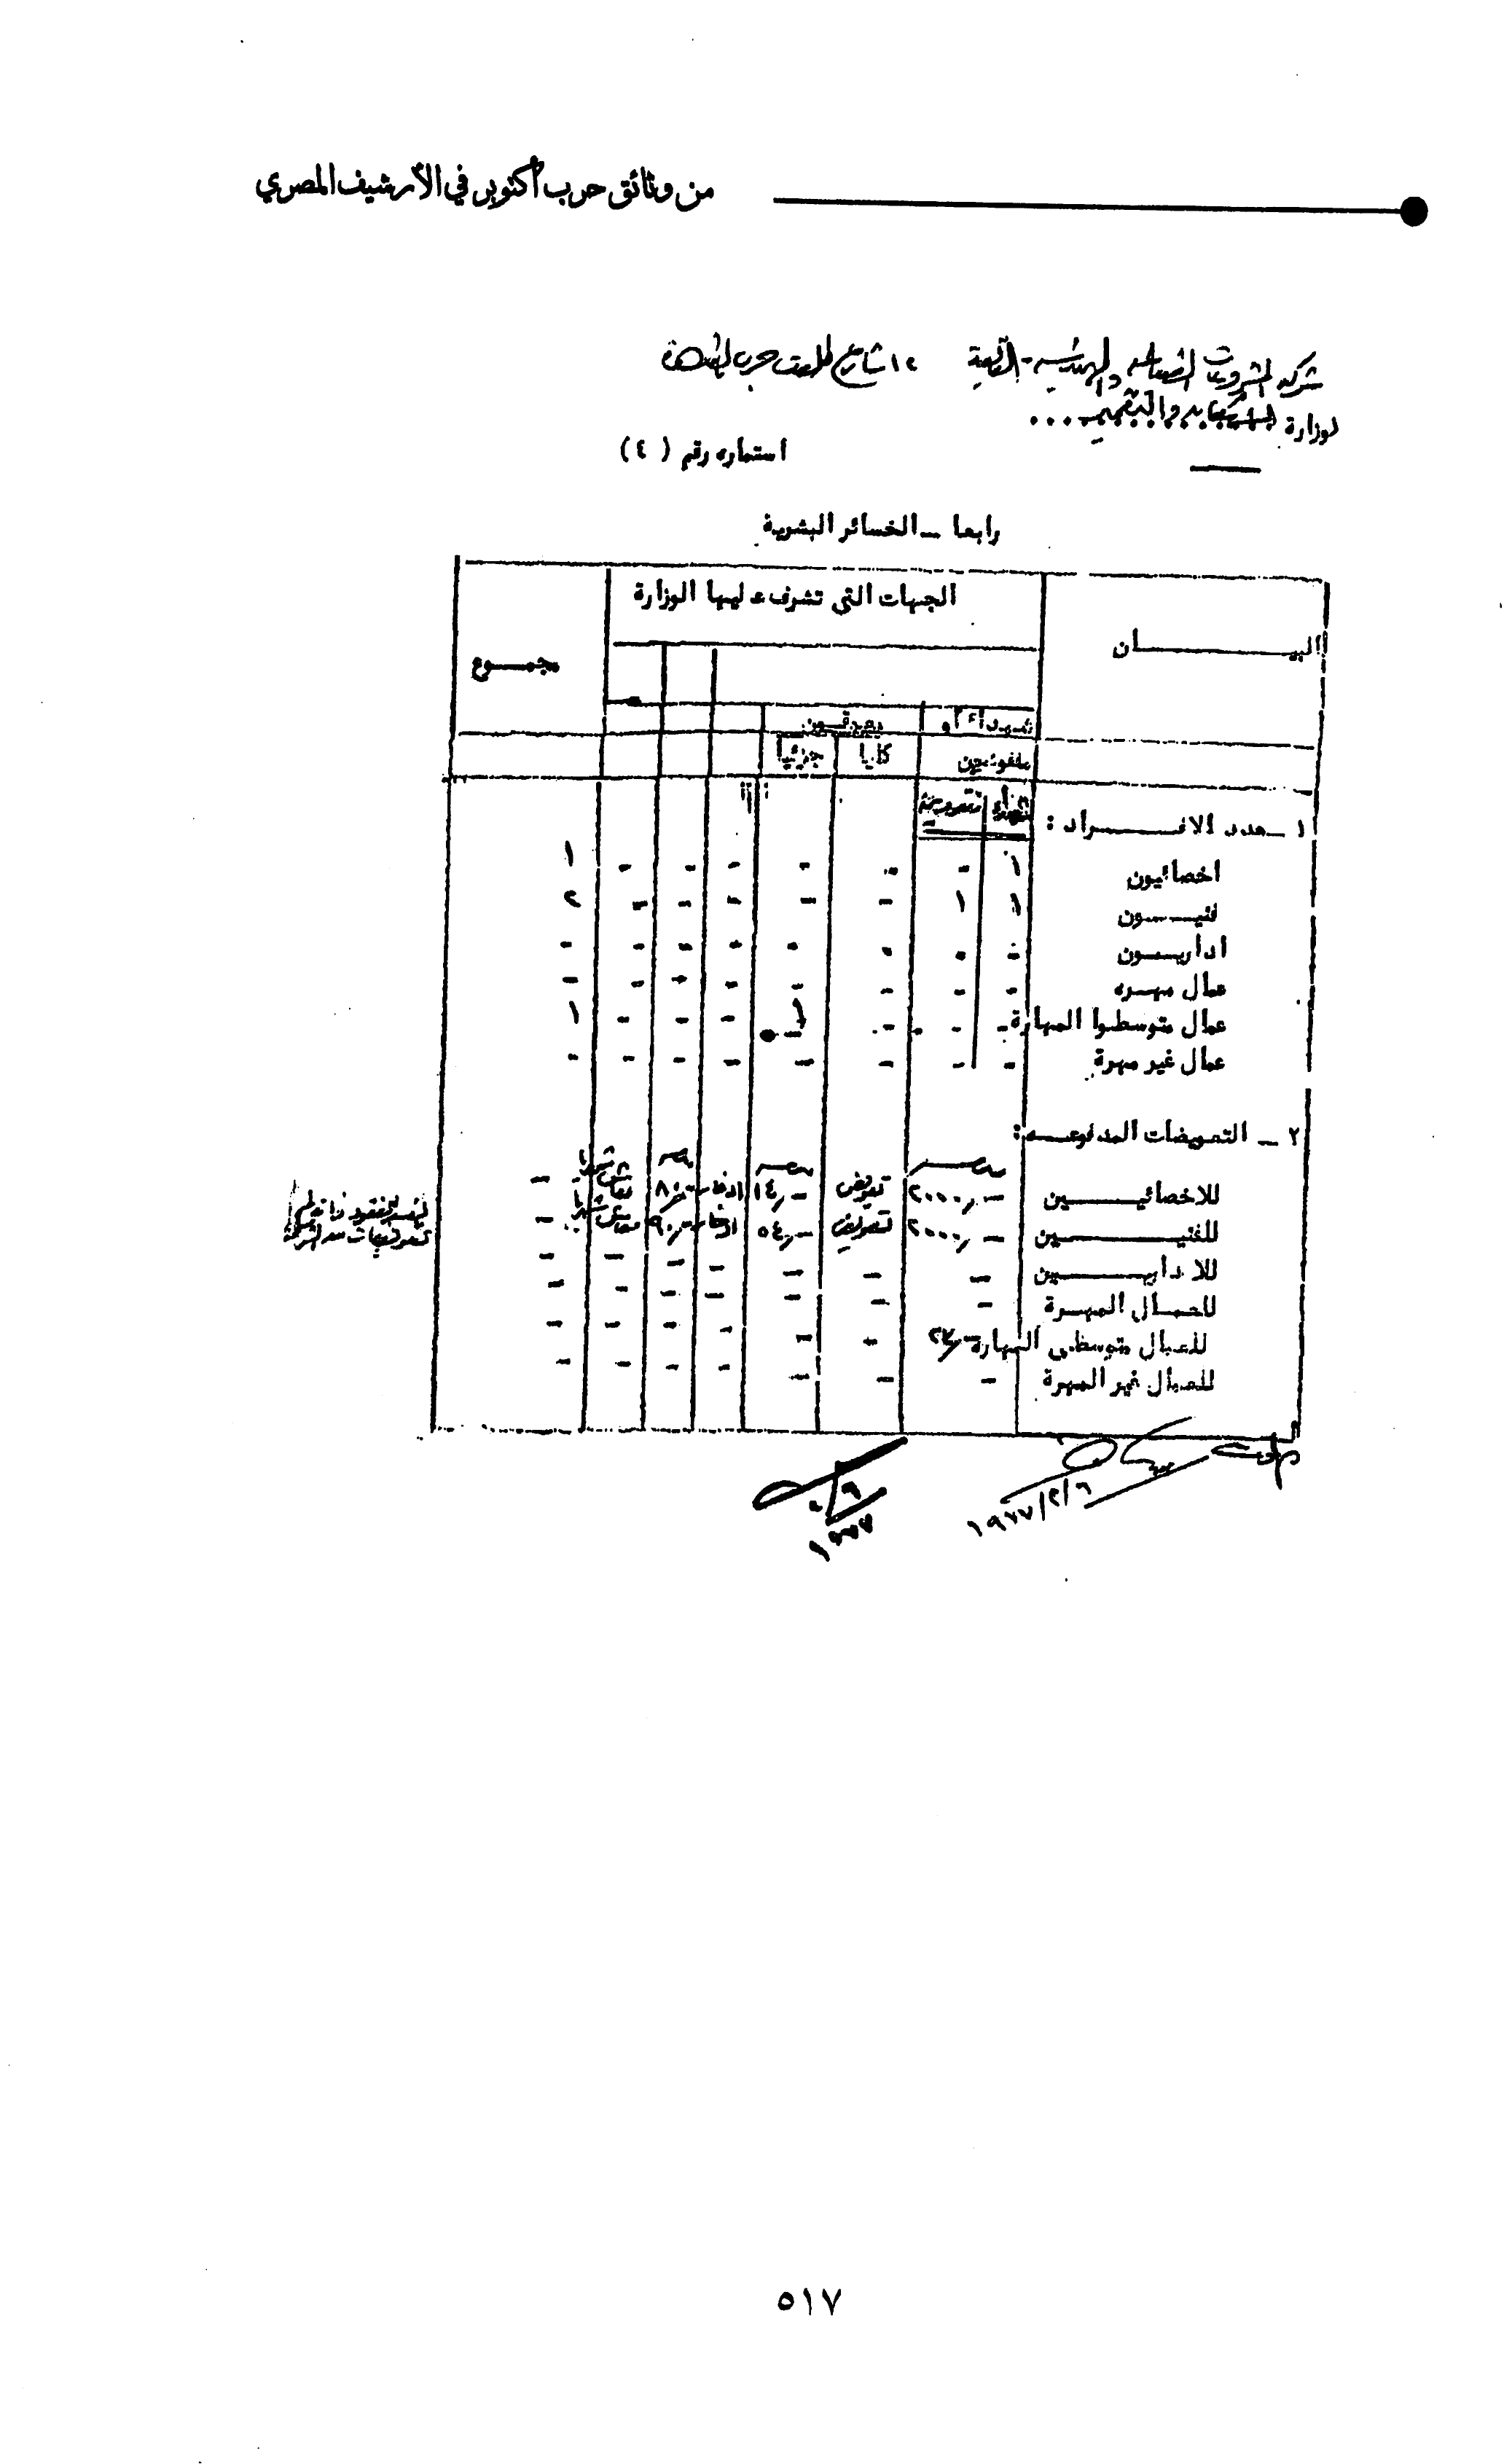 من وثائق حرب أكتوبر في الأرشيف المصري
شركة المشروعات الصناعية والهندسية ١٢ شارع طلعت حرب القاهرة
لوزارة الاسكان والتعمير
استماره رقم (٤)
رابعا – الخسائر البشرية
البيـــان الجهات التي تشرف عليها الوزارة مجمـــوع
شهداء او
مفقودين كليا جزئيا
١ – عدد الافـــراد : شهداء
اخصائيون ١ - - - - - - ١
فنيـــون ١ ١ - - - - - ٢
اداريـــون - - - - - - - -
عمال مهره - - - - - - - -
عمال متوسطوا المهارة - - - ١ - - - ١
عمال غير مهرة - - - - - - - -
٢ – التعويضات المدفوعـه :
للاخصائيـــين ٢٠٠٠٫- تعويض ١٤٫- ٨٠٫- معاش شهريا -
للفنيـــين ٢٠٠٠٫- تعويض ٥٤٫- ٩٠٫- معاش شهريا -
للاداريـــين - - - - - - -
للعمـال المهـرة - - - - - - -
للعمال متوسطى المهارة ٢٧٫- - - - - - -
للعمال غير المهرة - - - - - - -
١٩٧٧/٢/٦
٦/٢
١٩٧٧
٥١٧